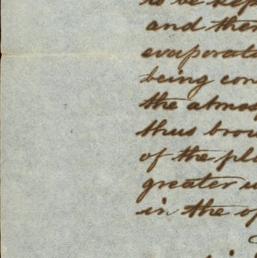 to be kep
and then
evaporat
being con
the atmos
thus brou
of the pla
greater u
in the op